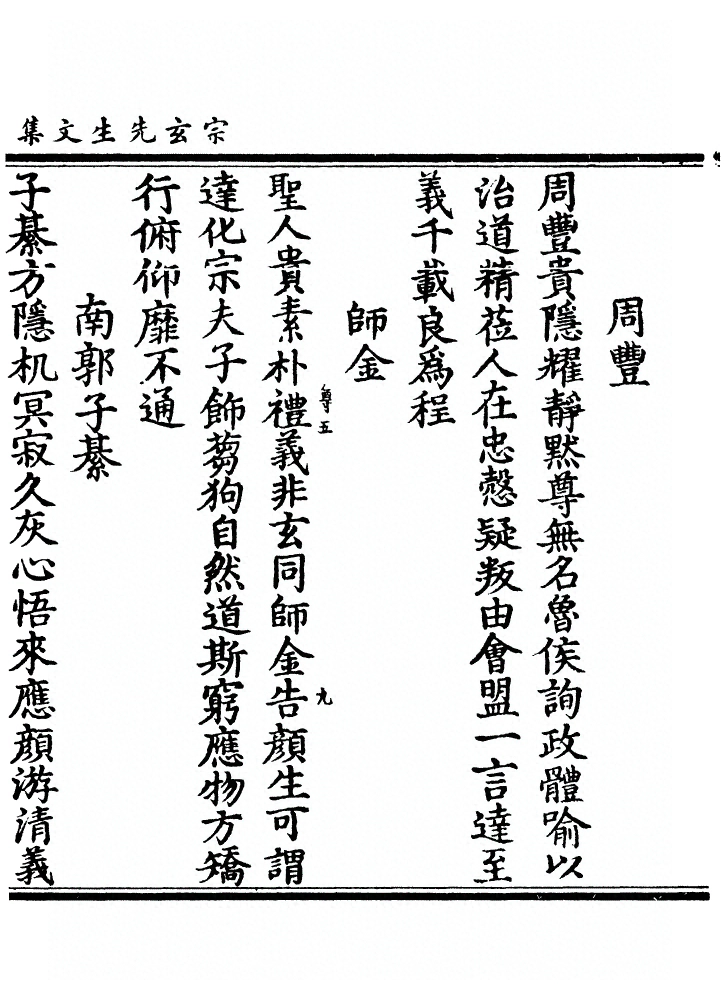 宗玄先生文集
周豐
周豐貴隱耀靜默尊無名魯侯詢政體喻以
治道精莅人在忠慤疑叛由會盟一言達至
義千載良爲程
師金
聖人貴素朴禮義非玄同師金告顔生可謂
尊五
九
達化宗夫子飾蒭狗自然道斯窮應物方矯
行俯仰靡不通
南郭子綦
子綦方隱机冥寂久灰心悟來應顔游清義